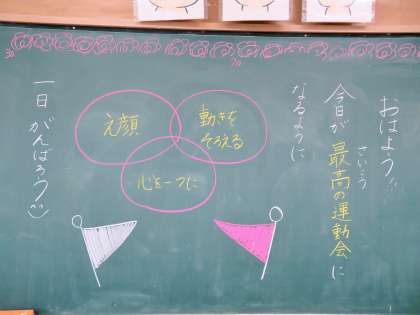 おはよう!!
今日が最高の運動会に
さいこう
なるように
笑顔
動きを
そろえる
心を一つに
一日がんばろう